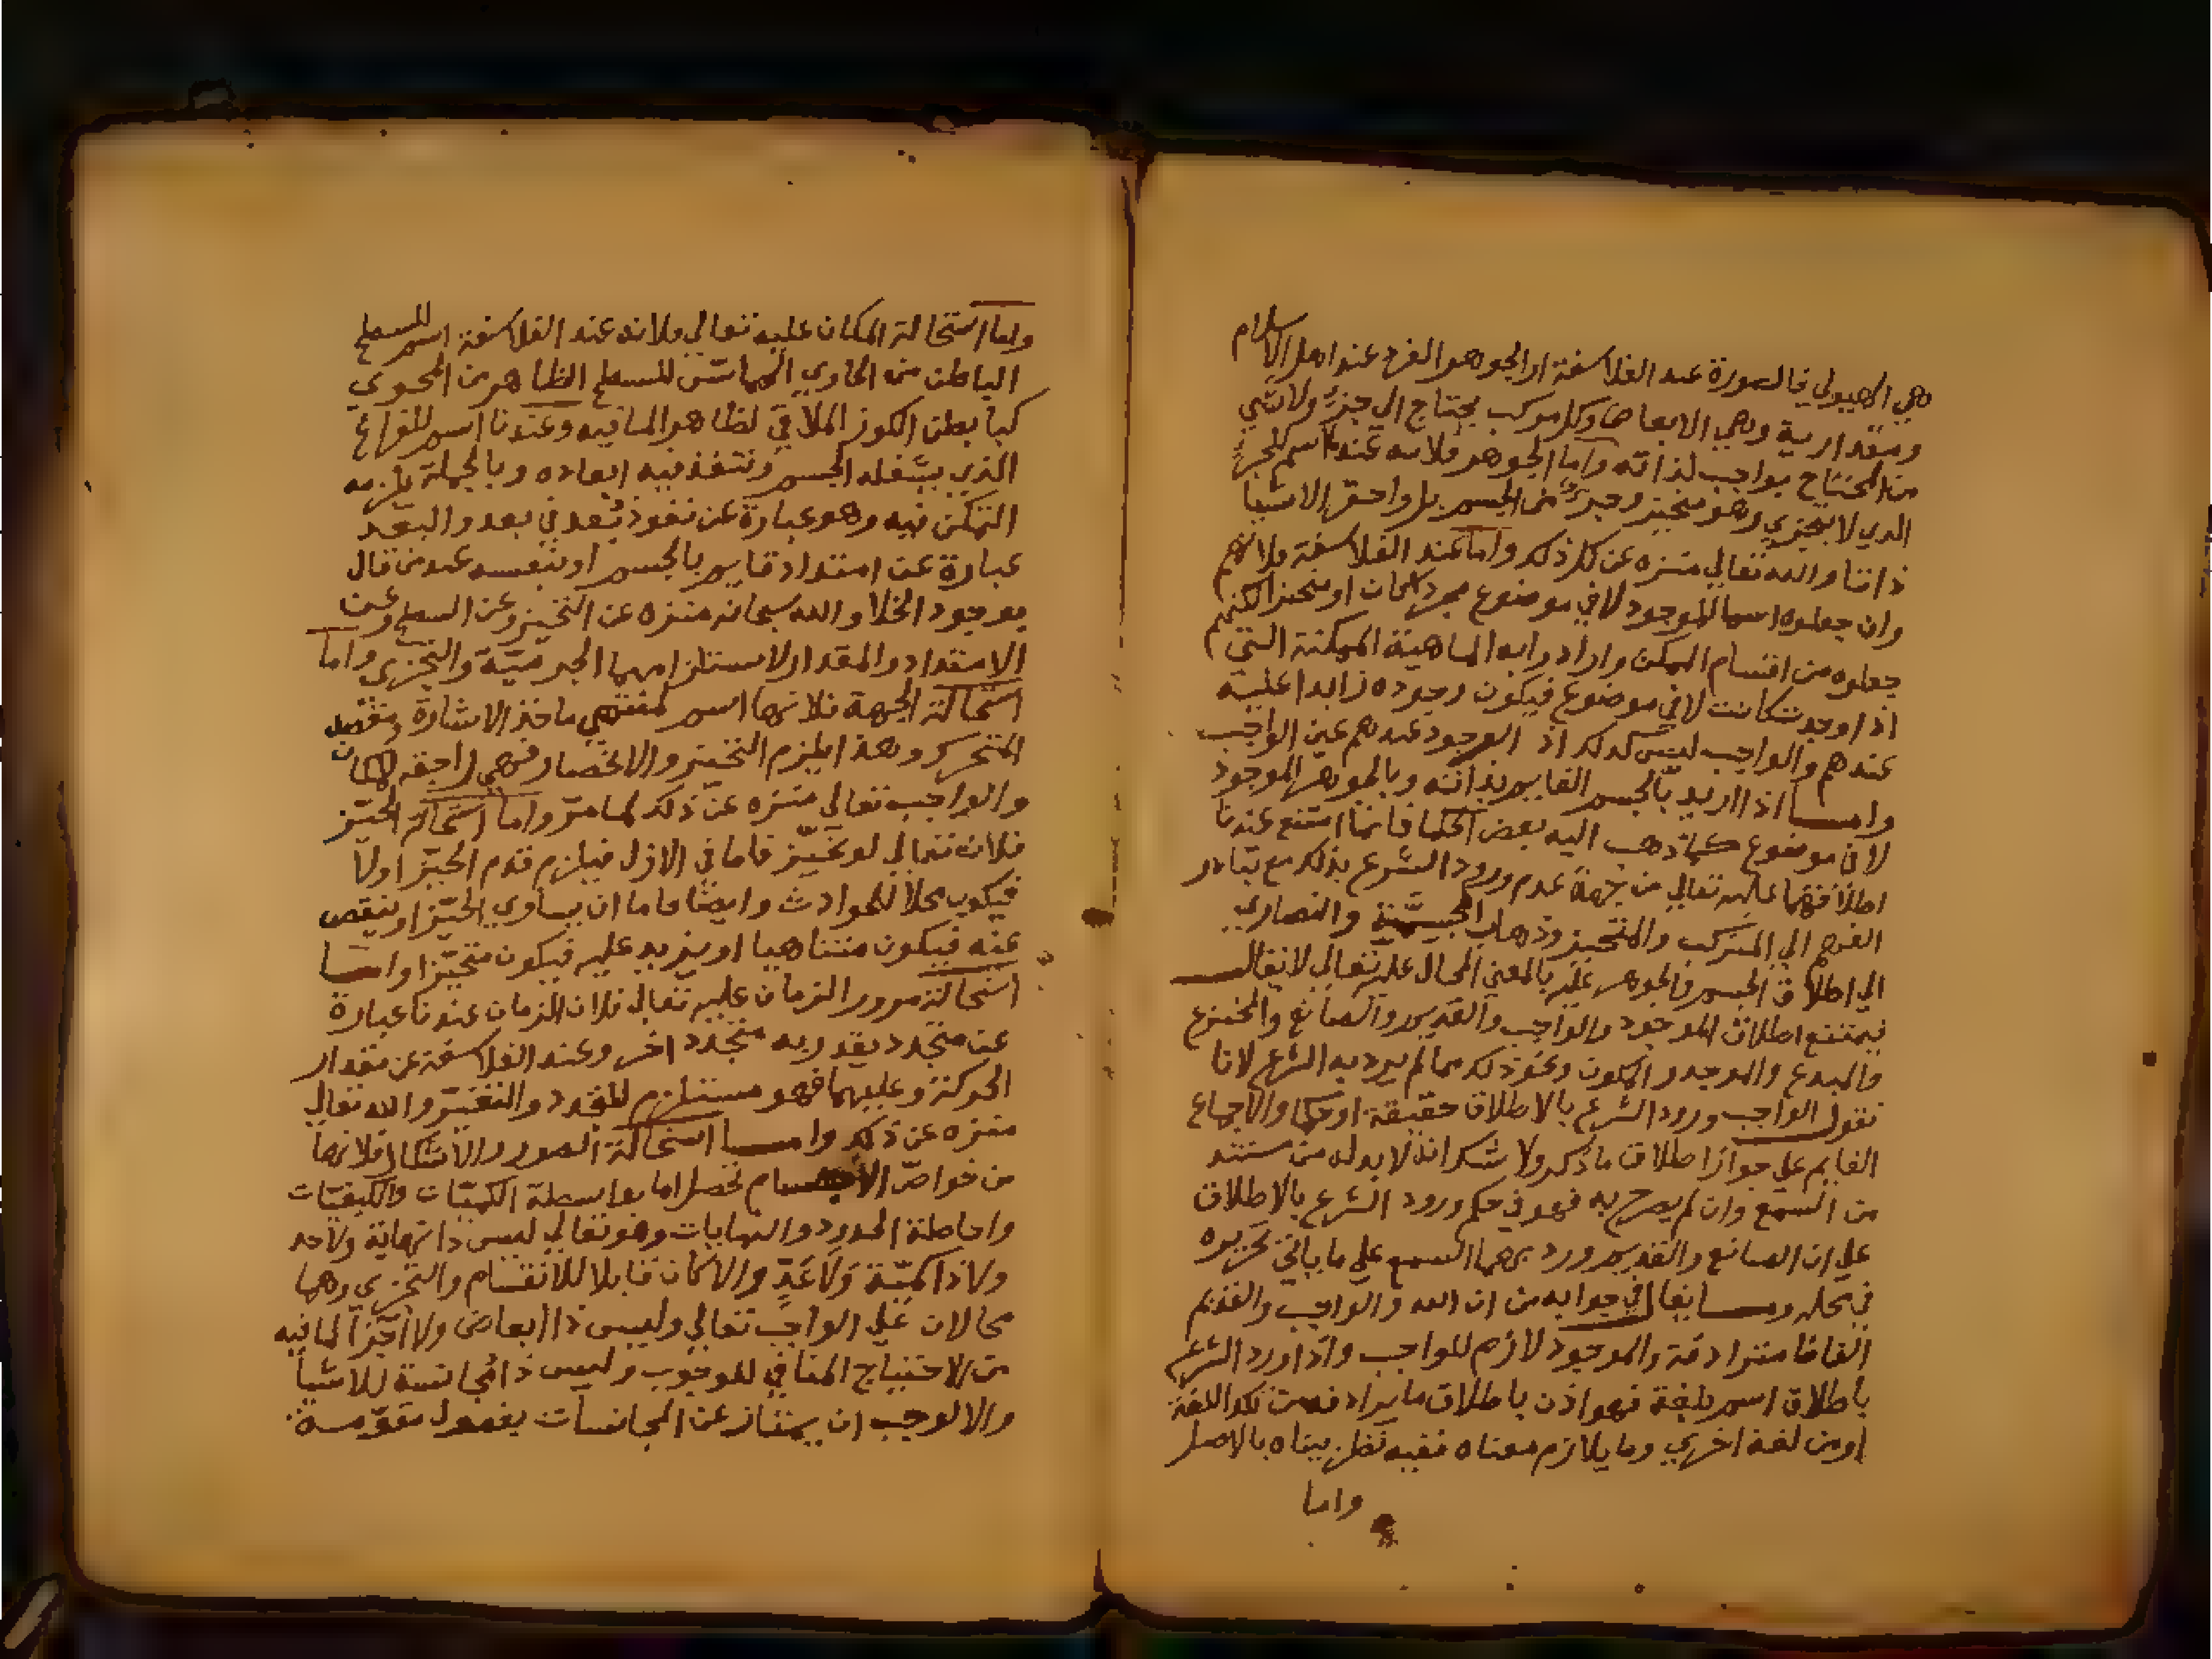 هي الهيولي فالصورة عند الفلاسفة او الجوهر الفرد عند اهل الاسلام
ومقدارية وهي الابعاض وكل مركب يحتاج الي جزئه ولا شي
من المحتاج بواجب لذاته واما الجوهر فلانه عندنا اسم للجزء
الذي لا يتجزي وهو متحيز وجزء من الجسم بل واحقر الاشيا
ذاتا والله تعالي منزه عن كل ذلك واما عند الفلاسفة فلانهم
وان جعلوه اسما للموجود لا في موضوع مجردا كان او متحيزا لكنهم
جعلوه من اقسام الممكن وارادوا به الماهية الممكنة التي
اذا وجدت كانت لا في موضوع فيكون وجوده زايدا عليه
عندهم والواجب ليس كذلك اذ الوجود عندهم عين الواجب
واما اذا اريد بالجسم القايم بذاته وبالجوهر الموجود
لا في موضوع كما ذهب اليه بعض الحكما فانما امتنع عندنا
اطلاقهما عليه تعالي من جهة عدم ورود الشرع بذلك مع تبادر
الفهم الي المتركب والمتحيز وذهاب المجسمة والنصاري
الي اطلاق الجسم والجوهر عليه بالمعني المحال عليه تعالي لا يقال
فيمتنع اطلاق الموجود والواجب والقديم والصانع والمخترع
والمبدع والموجد والمكون ونحو ذلك مما لم يرد به الشرع لانا
نقول الواجب ورود الشرع بالاطلاق حقيقة او حكما والاجماع
القايم علي جواز اطلاق ما ذكر ولا شك انه لا بد له من مستند
من السمع وان لم يصرح به فهو في حكم ورود الشرع بالاطلاق
علي ان الصانع والقديم ورد بهما السمع علي ما ياتي تحريره
في محله وما يقال في جوابه من ان الله والواجب والقديم
الفاظا مترادفة والموجود لازم للواجب واذا ورد الشرع
باطلاق اسم بلغة فهو اذن باطلاق ما يرادفه من تلك اللغة
او من لغة اخري وما يلازم معناه ففيه نظر بيناه بالاصل
واما
واما استحالة المكان عليه تعالي فلانه عند الفلاسفة اسم للسطح
الباطن من الحاوي المماس للسطح الظاهر من المحوي
كباطن الكوز الملاقي لظاهر الما فيه وعندنا اسم للفراغ
الذي يشغله الجسم وتنفذ فيه ابعاده وبالجملة يلزمه
التمكن فيه وهو عبارة عن نفوذ بُعد في بعد والبعد
عبارة عن امتداد قايم بالجسم او بنفسه عند من قال
بوجود الخلا والله سبحانه منزه عن التحيز وعن السطح وعن
الامتداد والمقدار لاستلزامهما الجرمية والتجزي واما
استحالة الجهة فلانها اسم لمنتهي ماخذ الاشارة ومقصد
المتحرك وهذا يلزم التحيز والانحصار فهي راجعة للمكان
والواجب تعالي منزه عن ذلك لما مر واما استحالة الحيز
فلانه تعالي لو تحيز فاما في الازل فيلزم قدم الحيز او لا
فيكون محلا للحوادث وايضا فاما ان يساوي الحيز او ينقص
عنه فيكون متناهيا او يزيد عليه فيكون متحيزا واما
استحالة مرور الزمان عليه تعالي فلان الزمان عندنا عبارة
عن متجدد يقدر به متجدد اخر وعند الفلاسفة عن مقدار
الحركة وعليهما فهو مستلزم للتجدد والتغير والله تعالي
منزه عن ذلك واما استحالة الصور والاشكال فلانها
من خواص الاجسام تحصل لها بواسطة الكميات والكيفيات
واحاطة الحدود والنهايات وهو تعالي ليس ذا نهاية ولا حد
ولا ذا كمية ولا عد والا كان قابلا للانقسام والتجزي وهما
محالان علي الواجب تعالي وليس ذا ابعاض ولا اجزا لما فيه
من الاحتياج المنافي للوجوب وليس ذا مجانسة للاشيا
والا لوجب ان يمتاز عن المجانسات بفصول مقومة